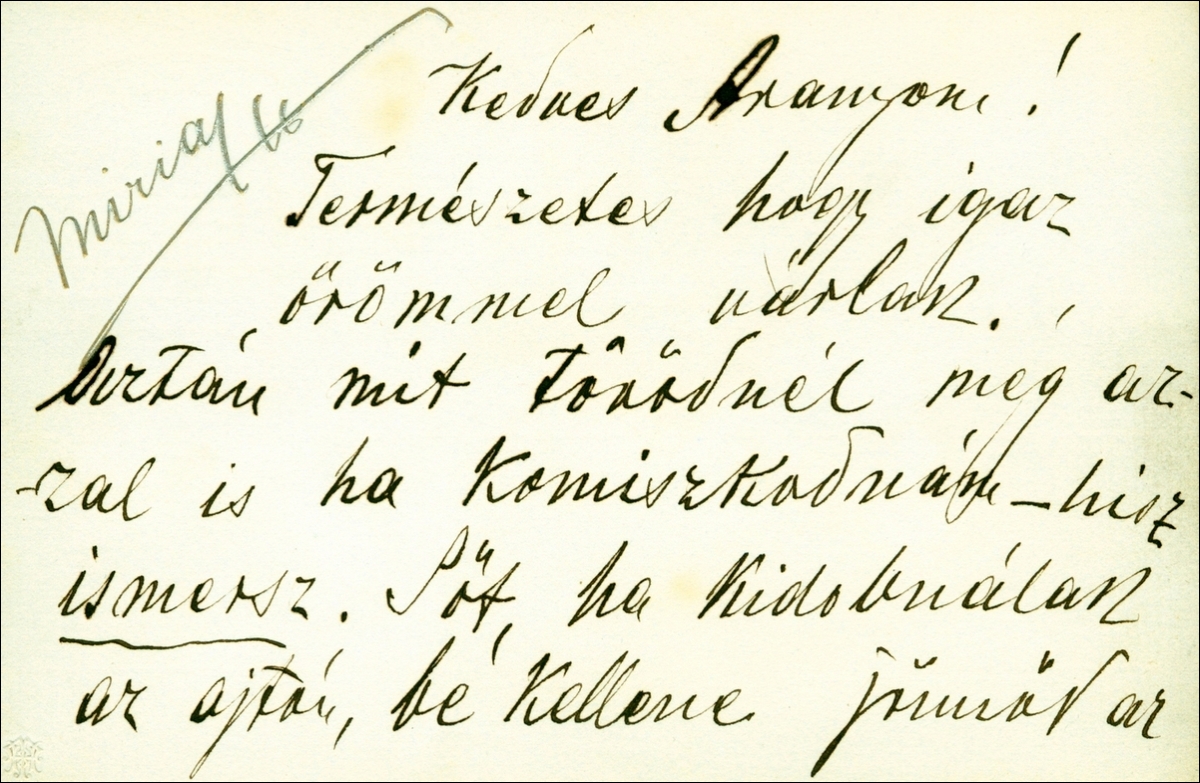 Miriam
Kedves Aranyom!
Természetes hogy igaz
örömmel várlak.
Aztán mit törődnél még az-
-zal is ha komiszkodnám – hisz
ismersz. Sőt, ha kidobnálak
az ajtón, bé kellene jönnöd az